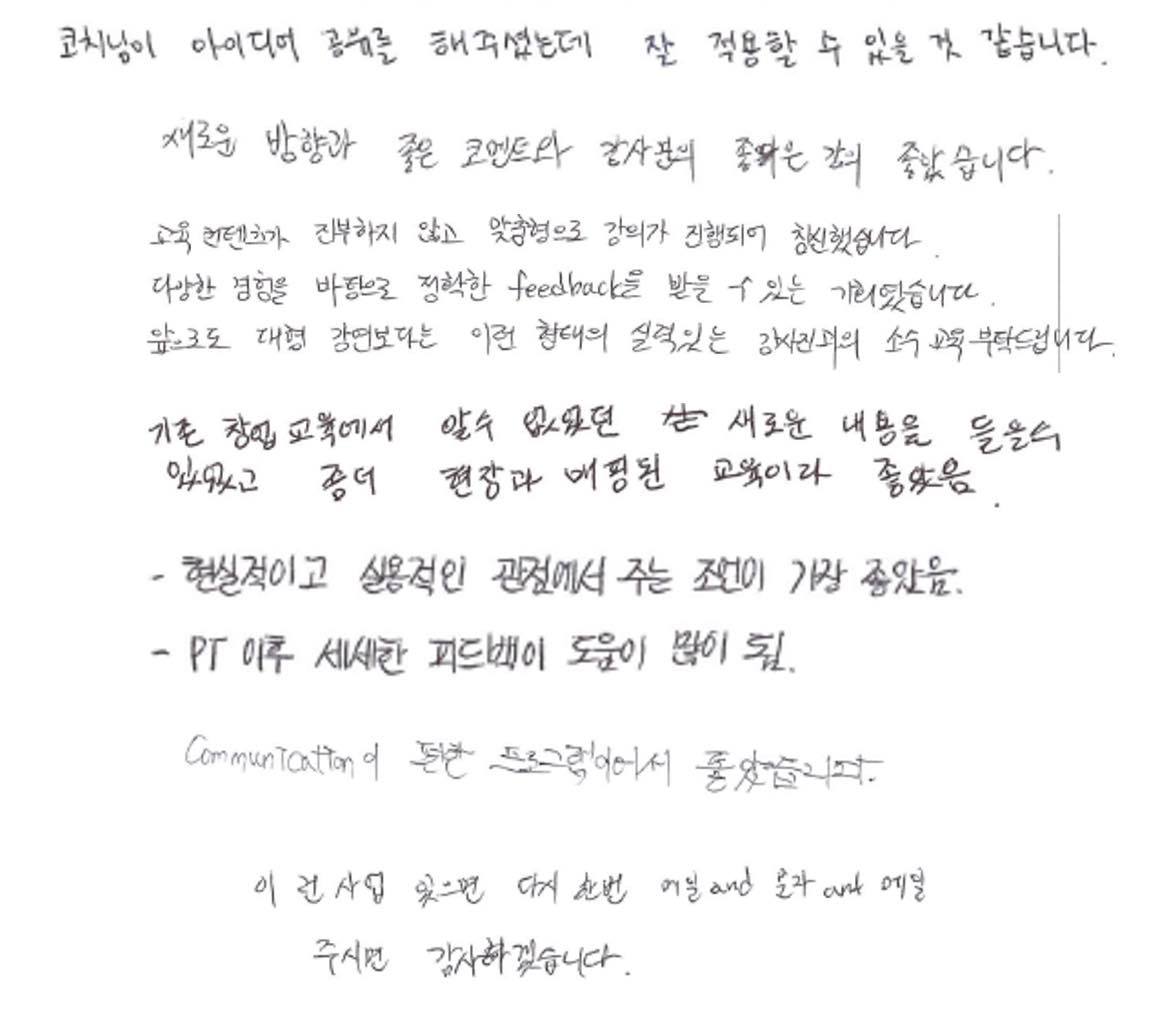 코치님이 아이디어 공유를 해주셨는데 잘 적용할 수 있을 것 같습니다.
새로운 방향과 좋은 코멘트와 강사분의 좋은 강의 좋았습니다.
교육 컨텐츠가 진부하지 않고 맞춤형으로 강의가 진행되어 참신했습니다.
다양한 경험을 바탕으로 정확한 feedback을 받을 수 있는 기회였습니다.
앞으로도 대형 강연보다는 이런 형태의 실력있는 강사진과의 소수 교육 부탁드립니다.
기존 창업교육에서 알수 없었던 새로운 내용을 들을수
있었고 좀더 현장과 매핑된 교육이라 좋았음.
- 현실적이고 실용적인 관점에서 주는 조언이 가장 좋았음.
- PT 이후 세세한 피드백이 도움이 많이 됨.
Communication이 편한 프로그램이어서 좋았습니다.
이런 사업 있으면 다시 한번 and
주시면 감사하겠습니다.